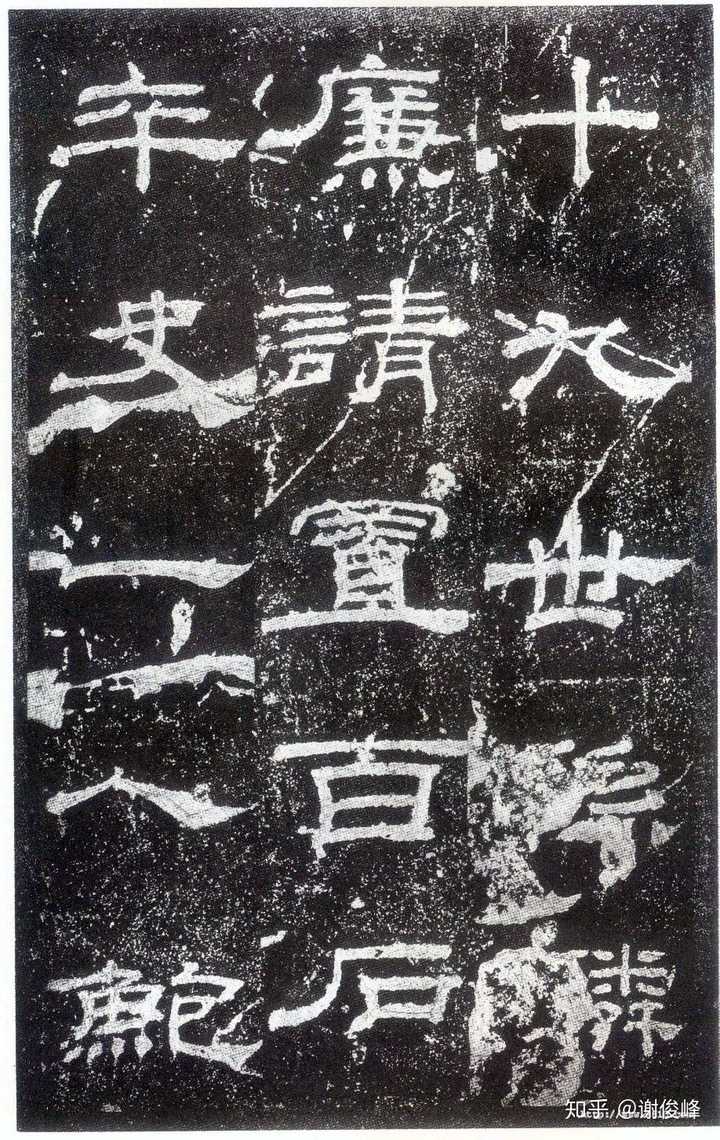 十九世孫麟
廉請置百石
卒史一人鮑
知乎 @谢俊峰